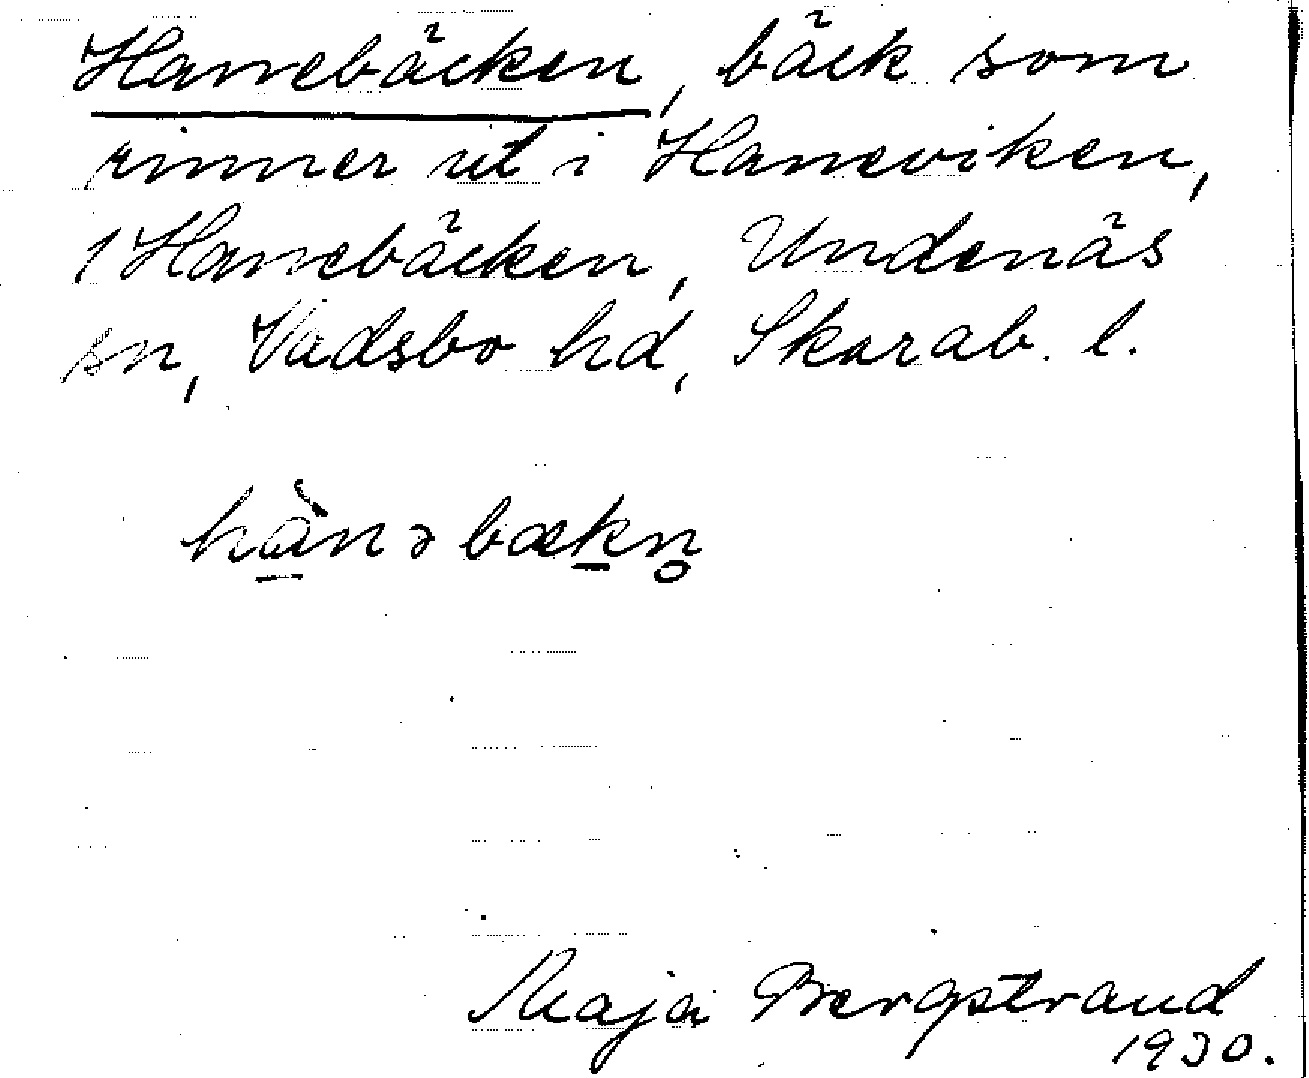 Hanebäcken, bäck som
rinner ut i Haneviken,
1 Hanebäcken, Undenäs
sn, Vadsbo hd, Skarab. l.
hа̀nəbækn̥
Maja Bergstrand
1930.